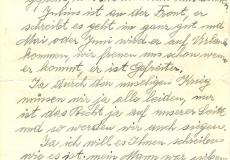 Antons ist an der Front, er
schreibt es geht im ganz gut und
Mai oder Juni wird er auf Urlaub
kommen, wir freuen uns schon wenn
er kommt, er ist Gefreiter.
Ja durch den unseligen Krieg
müssen wir ja alle leiden, nur
ist das Recht ja auf unserer Seite
und so werden wir auch siegen.
Ja ich will es Ihnen schreiben
wie es ist, mein Mann war